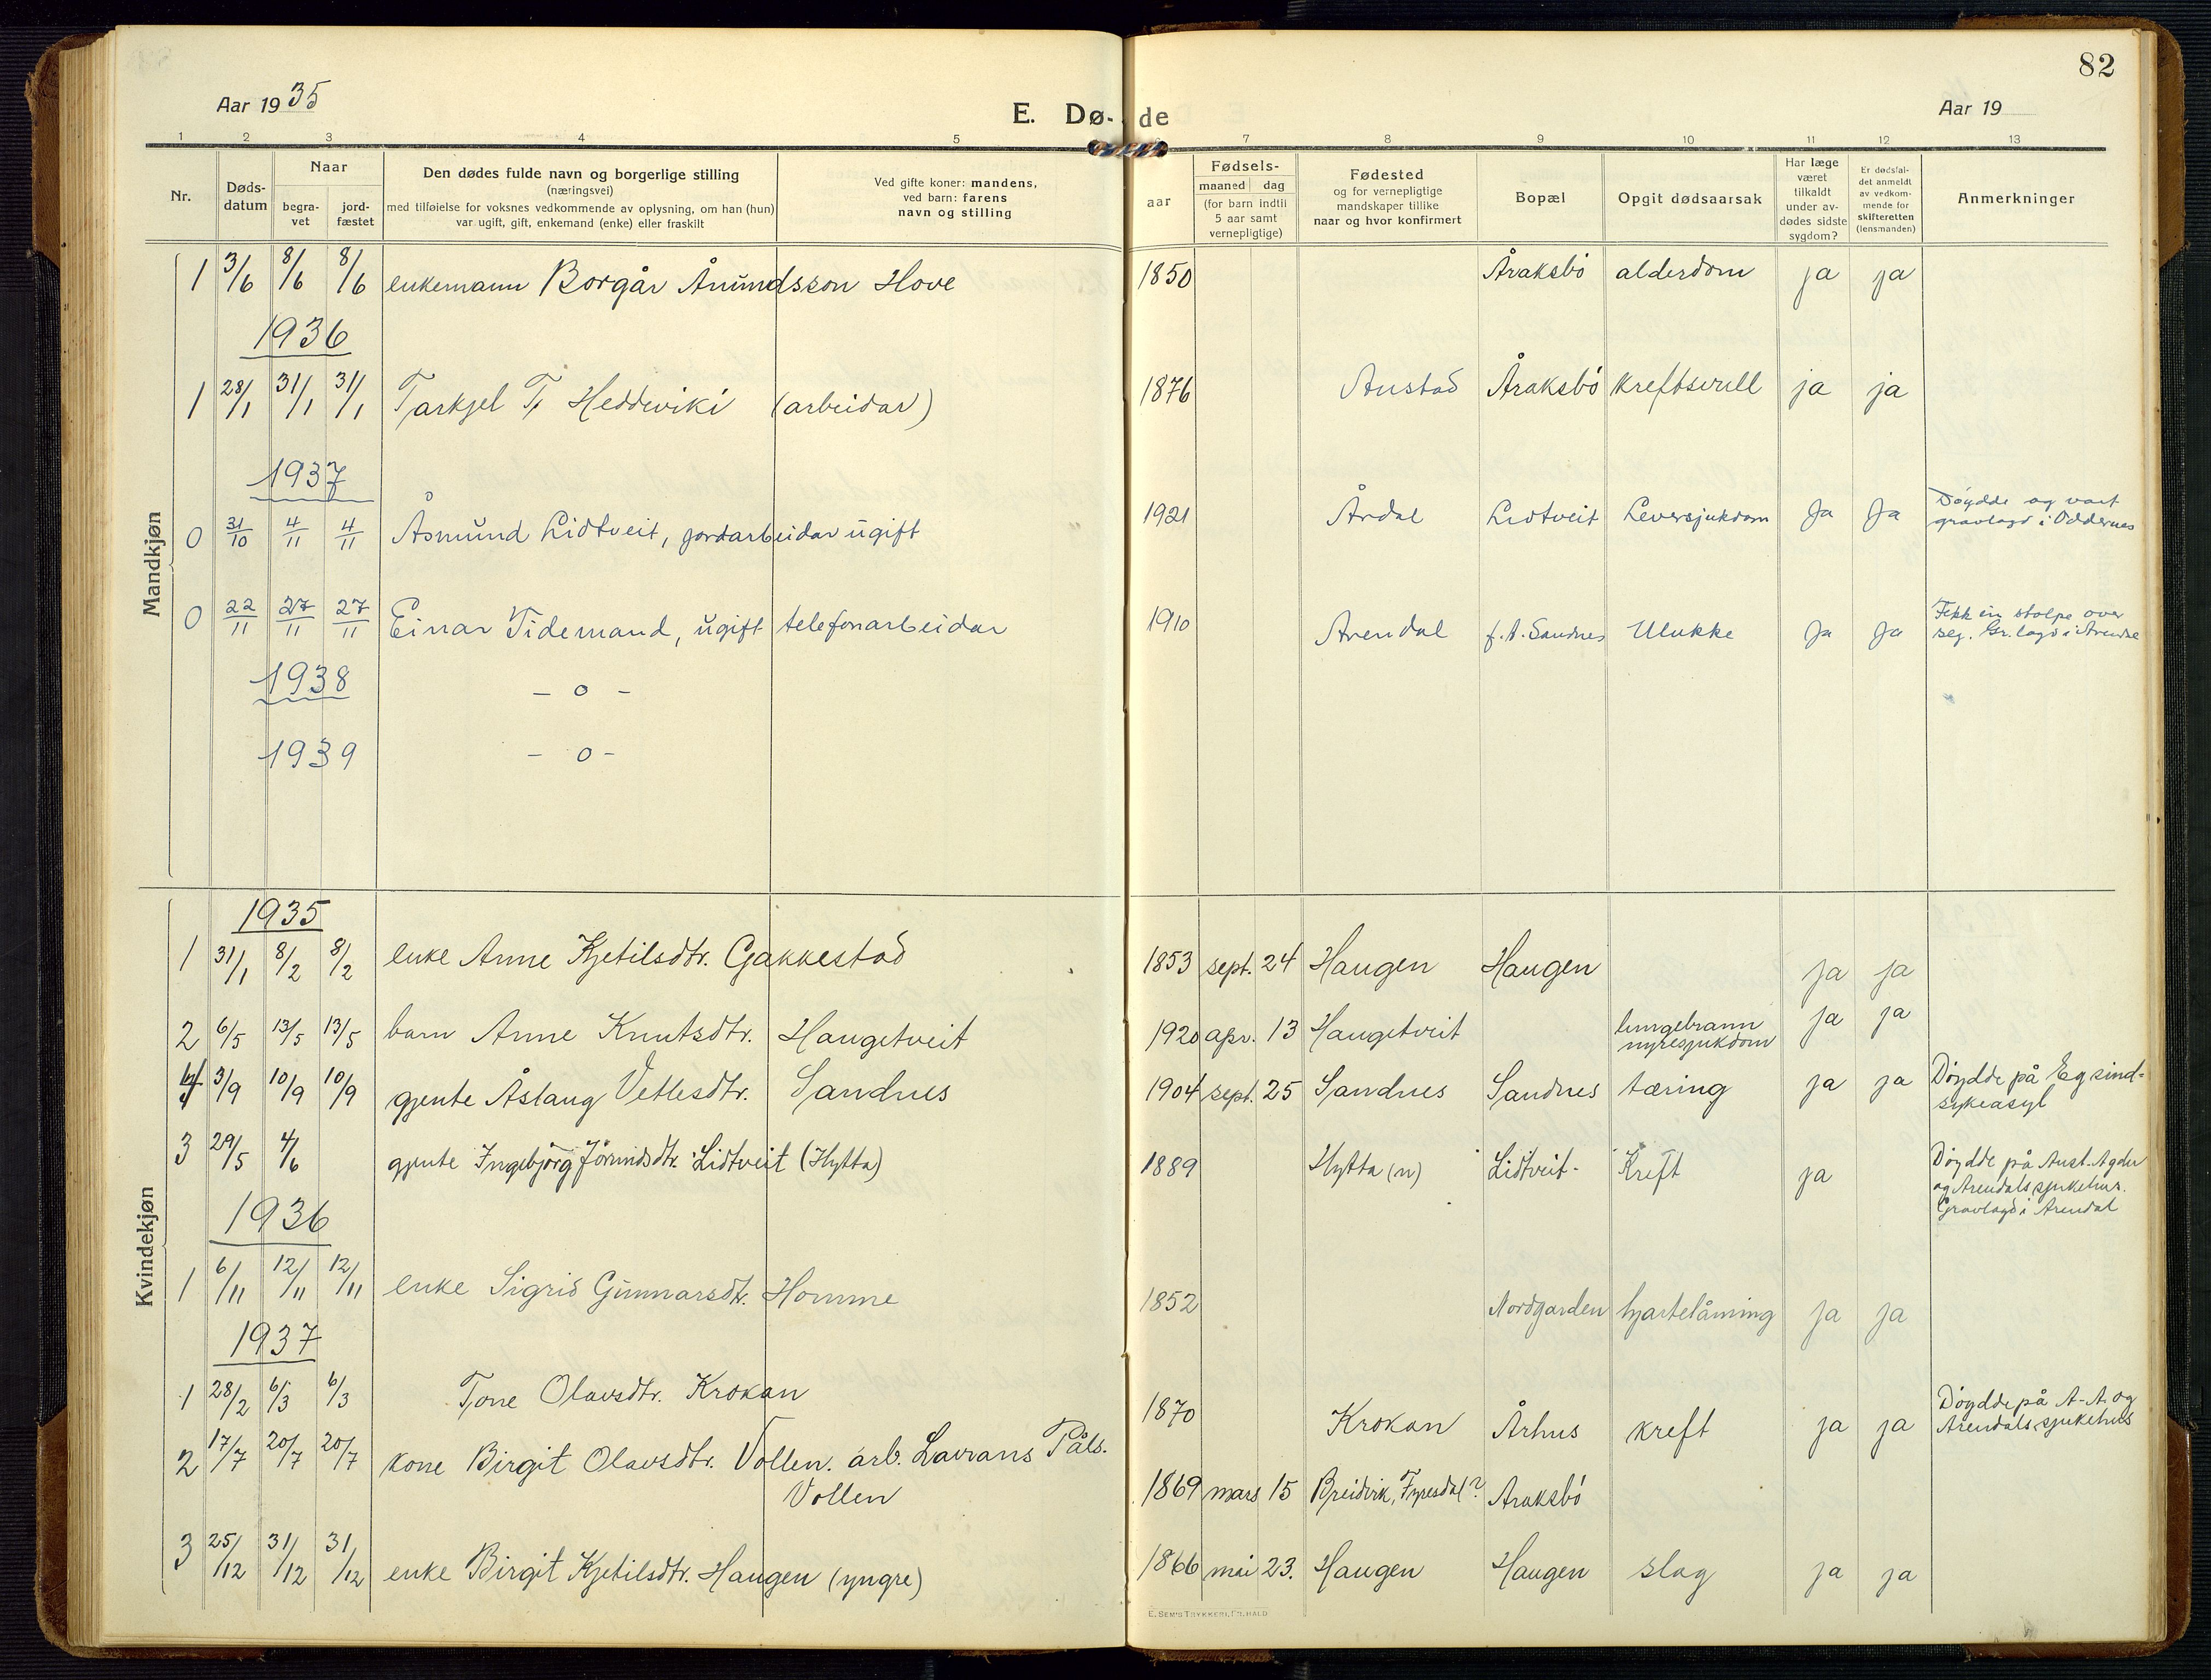 82
Aar 1935
E. Dø- de
Aar 19
1 2 3 4 5 7 8 9 10 11 12 13
Nr.
Døds-
datum
Naar
begra-
vet
jord-
fæstet
Den dødes fulde navn og borgerlige stilling
(næringsvei)
med tilføielse for voksnes vedkommende av oplysning, om han (hun)
var ugift, gift, enkemand (enke) eller fraskilt
Ved gifte koner: mandens,
ved barn: farens
navn og stilling
aar
Fødsels-
maaned dag
(for barn indtil
5 aar samt
vernepligtige)
Fødested
og for vernepligtige
mandskaper tillike
naar og hvor konfirmert
Bopæl
Opgit dødsaarsak
Har læge
været
tilkaldt
under av-
dødes sidste
sygdom?
Er dødsfal-
det anmeldt
av vedkom-
mende for
skifteretten
(lensmanden)
Anmerkninger
Mandkjøn
1 3/6 8/6 8/6 enkemann Borgår Ånundsson Hove 1850 Åraksbø alderdom ja ja
1936
1 28/1 31/1 31/1 Tarkjel T. Heddeviki (arbeidar) 1876 Austad Åraksbø kreftsvull ja ja
1937
0 31/10 4/11 4/11 Åsmund Lidtveit, jordarbeidar ugift 1921 Årdal Lidtveit Leversjukdom Ja Ja Døydde og vart
gravlagd i Oddernes
0 22/11 27/11 27/11 Einar Tidemand, ugift telefonarbeidar 1910 Arendal f.t. Sandnes Ulukke Ja Ja Fekk ein stolpe over
seg. Gr.lagd i Arendal
1938 - o -
1939 - o -
Kvindekjøn
1935
1 31/1 8/2 8/2 enke Anne Kjetilsdtr. Gakkestad 1853 sept. 24 Haugen Haugen ja ja
2 6/5 13/5 13/5 barn Anne Knutsdtr. Haugetveit 1920 apr. 13 Haugetveit lungebrann
nyresjukdom ja ja
4 3/9 10/9 10/9 gjente Åslaug Vetlesdtr. Sandnes 1904 sept. 25 Sandnes Sandnes tæring ja ja Døydde på Eg sind-
sykeasyl
3 29/5 4/6 gjente Ingebjørg Jørundsdtr. Lidtveit (Hytta) 1889 Hytta (n) Lidtveit- Kreft ja Døydde på Aust-Agder
og Arendals sjukehus.
Gravlagd i Arendal
1936
1 6/11 12/11 12/11 enke Sigrid Gunnarsdtr. Homme 1852 Nordgarden hjartelåming ja ja
1937
1 28/2 6/3 6/3 Tone Olavsdtr. Krokan 1870 Krokan Århus kreft ja ja Døydde på A-A. og
Arendals sjukehus
2 17/7 20/7 20/7 kone Birgit Olavsdtr. Vollen. arb. Lavrans Påls.
Vollen 1869 mars 15 Breidvik, Fyresdal? Araksbø
3 25/12 31/12 31/12 enke Birgit Kjetilsdtr. Haugen (yngre) 1866 mai 23. Haugen Haugen slag ja ja